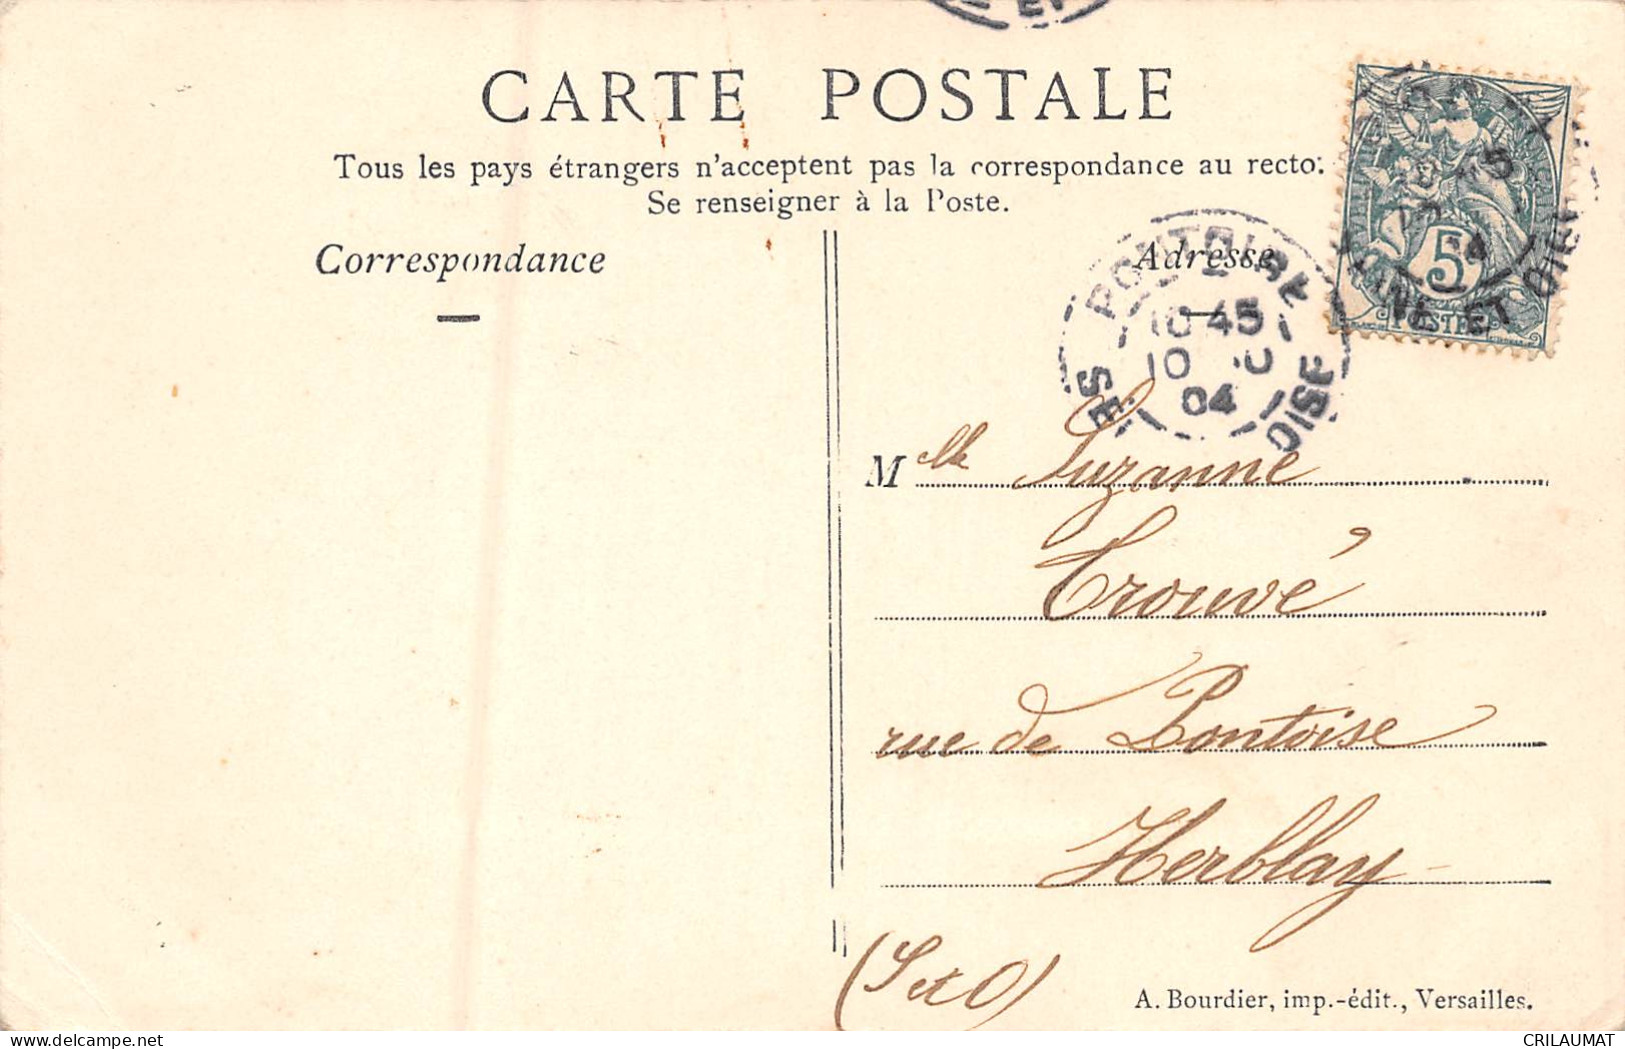 CARTE POSTALE
Tous les pays étrangers n'acceptent pas la correspondance au recto.
Se renseigner à la Poste.
Correspondance
Adresse
PONTOISE
10 45
10
04
SE OISE
5
POSTES
ET OISE
Mlle Suzanne
Trouvé
rue de Pontoise
Herblay
(S et O)
A. Bourdier, imp.-édit., Versailles.
CRILAUMAT